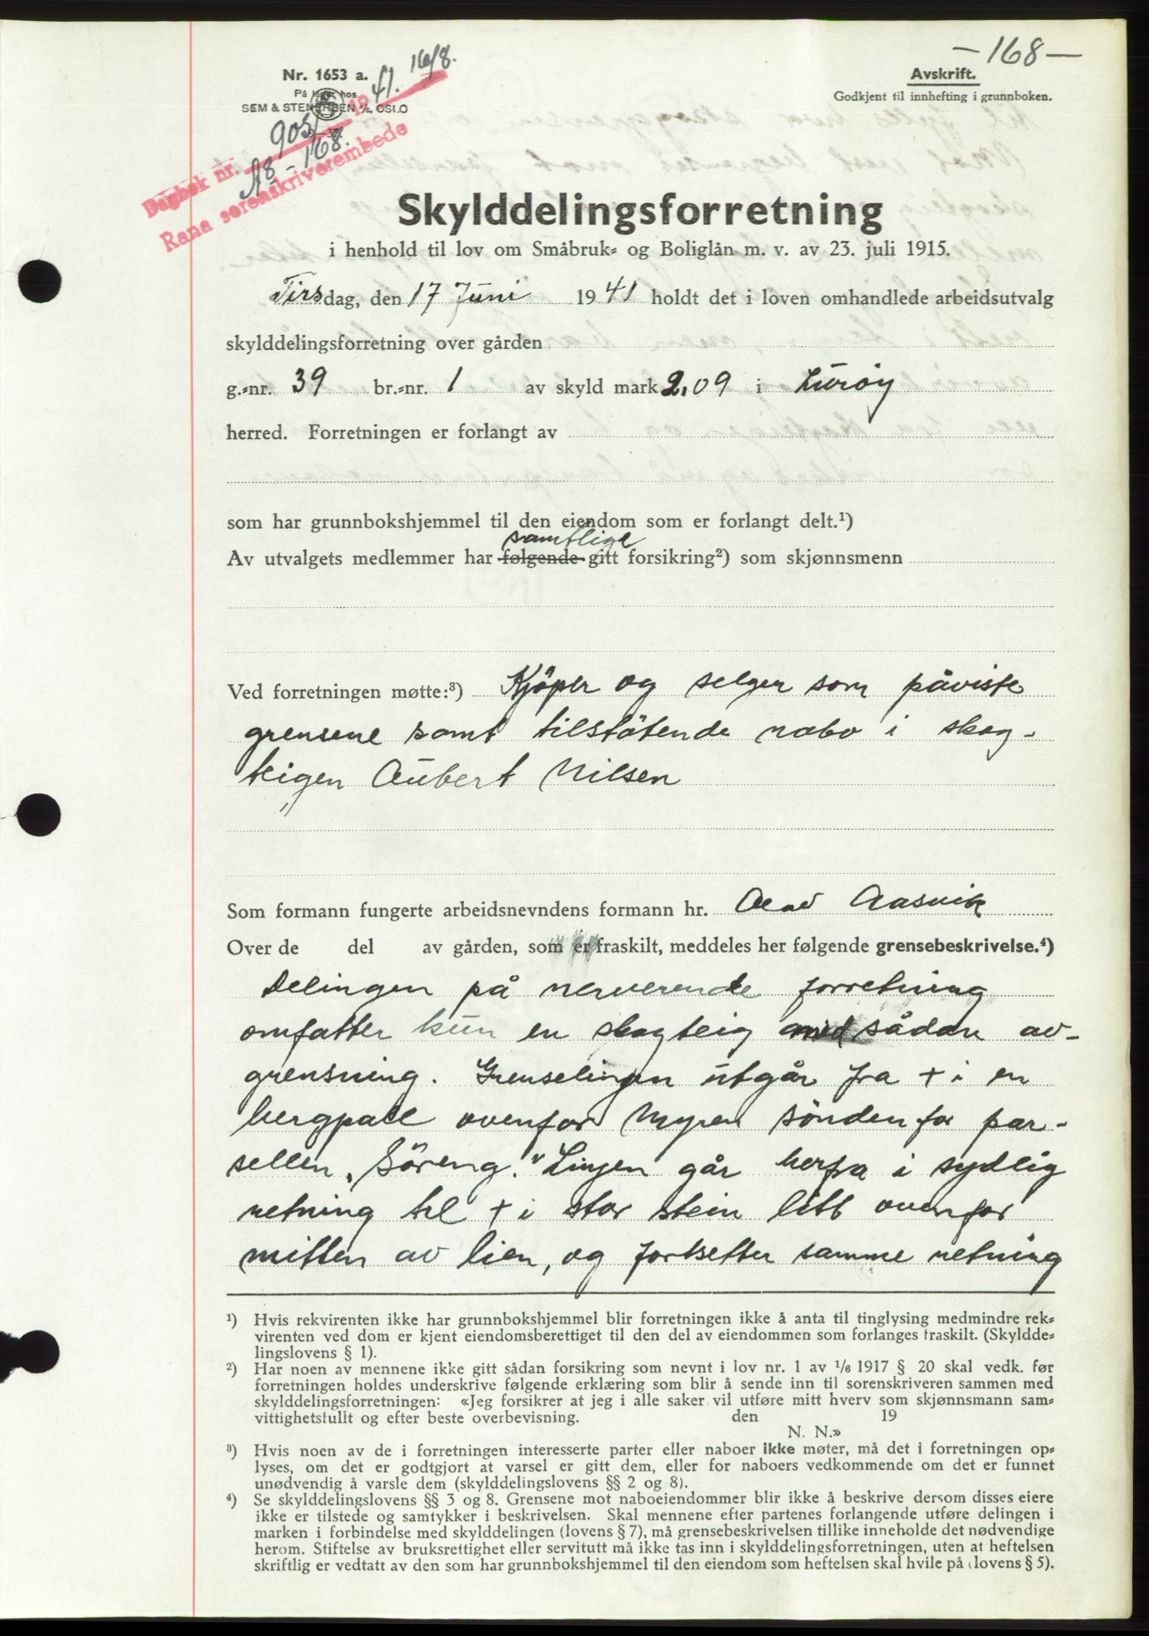 —168—
Nr. 1653 a.
På lager hos
SEM & STENERSEN A/S, OSLO
Avskrift.
Godkjent til innhefting i grunnboken.
Dagbok nr. 905/1941. 16/8.
A8 - 168.
Rana sorenskriverembede
Skylddelingsforretning
i henhold til lov om Småbruk- og Boliglån m. v. av 23. juli 1915.
Tirsdag, den 17 Juni 1941 holdt det i loven omhandlede arbeidsutvalg
skylddelingsforretning over gården
g.-nr. 39 br.-nr. 1 av skyld mark 2,09 i Lurøy
herred. Forretningen er forlangt av
som har grunnbokshjemmel til den eiendom som er forlangt delt.¹)
samtlige
Av utvalgets medlemmer har følgende gitt forsikring²) som skjønnsmenn
Ved forretningen møtte:³) Kjöper og selger som påviste
grensene samt tilstötende nabo i skog-
teigen Aubert Nilsen
Som formann fungerte arbeidsnevndens formann hr. Olav Aasvik
Over de del av gården, som er fraskilt, meddeles her følgende grensebeskrivelse.⁴)
Delingen på nerverende forretning
omfatter kun en skogteig med sådan av-
grensning. Grenselinjen utgår fra + i en
bergpall ovenfor Myren sönden for par-
sellen "Söreng." Linjen går herfra i sydlig
retning til + i stor stein litt ovenfor
mitten av lien, og fortsetter samme retning
¹) Hvis rekvirenten ikke har grunnbokshjemmel blir forretningen ikke å anta til tinglysing medmindre rek-
virenten ved dom er kjent eiendomsberettiget til den del av eiendommen som forlanges fraskilt. (Skyldde-
lingslovens § 1).
²) Har noen av mennene ikke gitt sådan forsikring som nevnt i lov nr. 1 av 1/6 1917 § 20 skal vedk. før
forretningen holdes underskrive følgende erklæring som blir å sende inn til sorenskriveren sammen med
skylddelingsforretningen: «Jeg forsikrer at jeg i alle saker vil utføre mitt hverv som skjønnsmann sam-
vittighetsfullt og efter beste overbevisning. den 19
N. N.»
³) Hvis noen av de i forretningen interesserte parter eller naboer ikke møter, må det i forretningen op-
lyses, om det er godtgjort at varsel er gitt dem, eller for naboers vedkommende om det er funnet
unødvendig å varsle dem (skylddelingslovens §§ 2 og 8).
⁴) Se skylddelingslovens §§ 3 og 8. Grensene mot naboeiendommer blir ikke å beskrive dersom disses eiere
ikke er tilstede og samtykker i beskrivelsen. Skal mennene efter partenes forlangende utføre delingen i
marken i forbindelse med skylddelingen (lovens § 7), må grensebeskrivelsen tillike inneholde det nødvendige
herom. Stiftelse av bruksrettighet eller servitutt må ikke tas inn i skylddelingsforretningen, uten at heftelsen
skriftlig er vedtatt av den som har grunnbokshjemmel til den eiendom som heftelsen skal hvile på (lovens § 5).